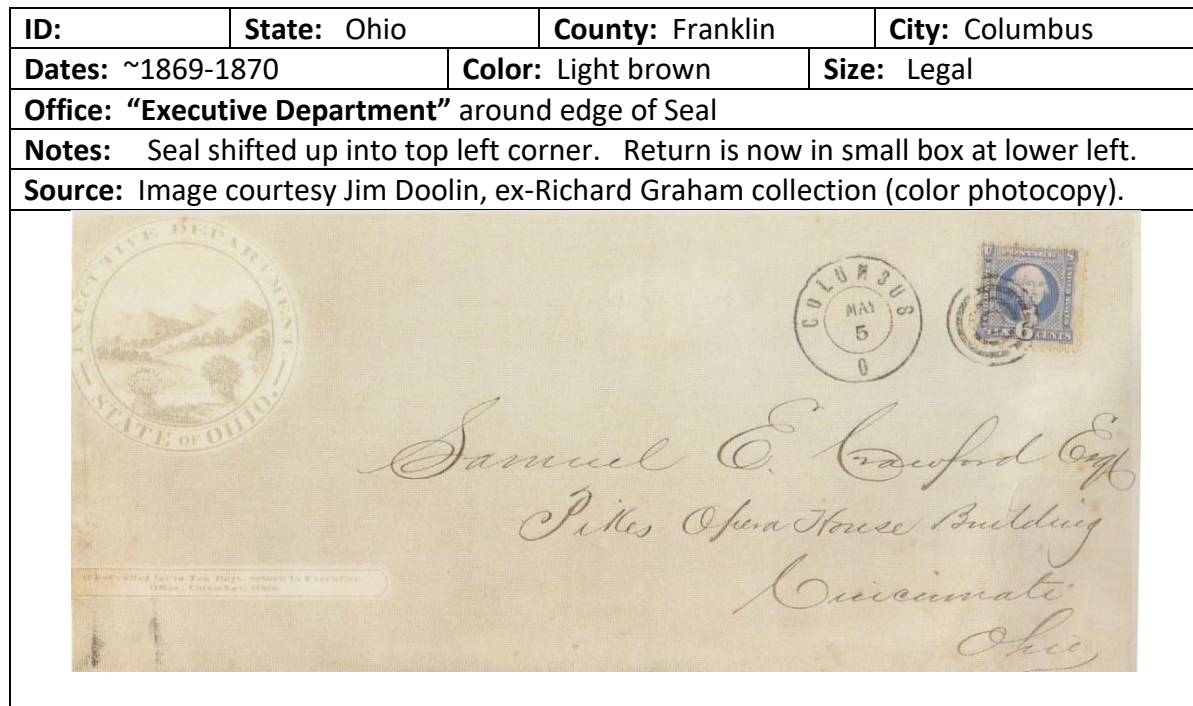 ID: State: Ohio County: Franklin City: Columbus
Dates: ~1869-1870 Color: Light brown Size: Legal
Office: “Executive Department” around edge of Seal
Notes: Seal shifted up into top left corner. Return is now in small box at lower left.
Source: Image courtesy Jim Doolin, ex-Richard Graham collection (color photocopy).
EXECUTIVE DEPARTMENT.
STATE OF OHIO.
COLUMBUS
MAY
5
O
U S
POSTAGE
SIX 6 CENTS
Samuel E. Crawford Esq
Pikes Opera House Building
Cincinnati
Ohio
If not called for in Ten Days, return to Executive
Office, Columbus, Ohio.